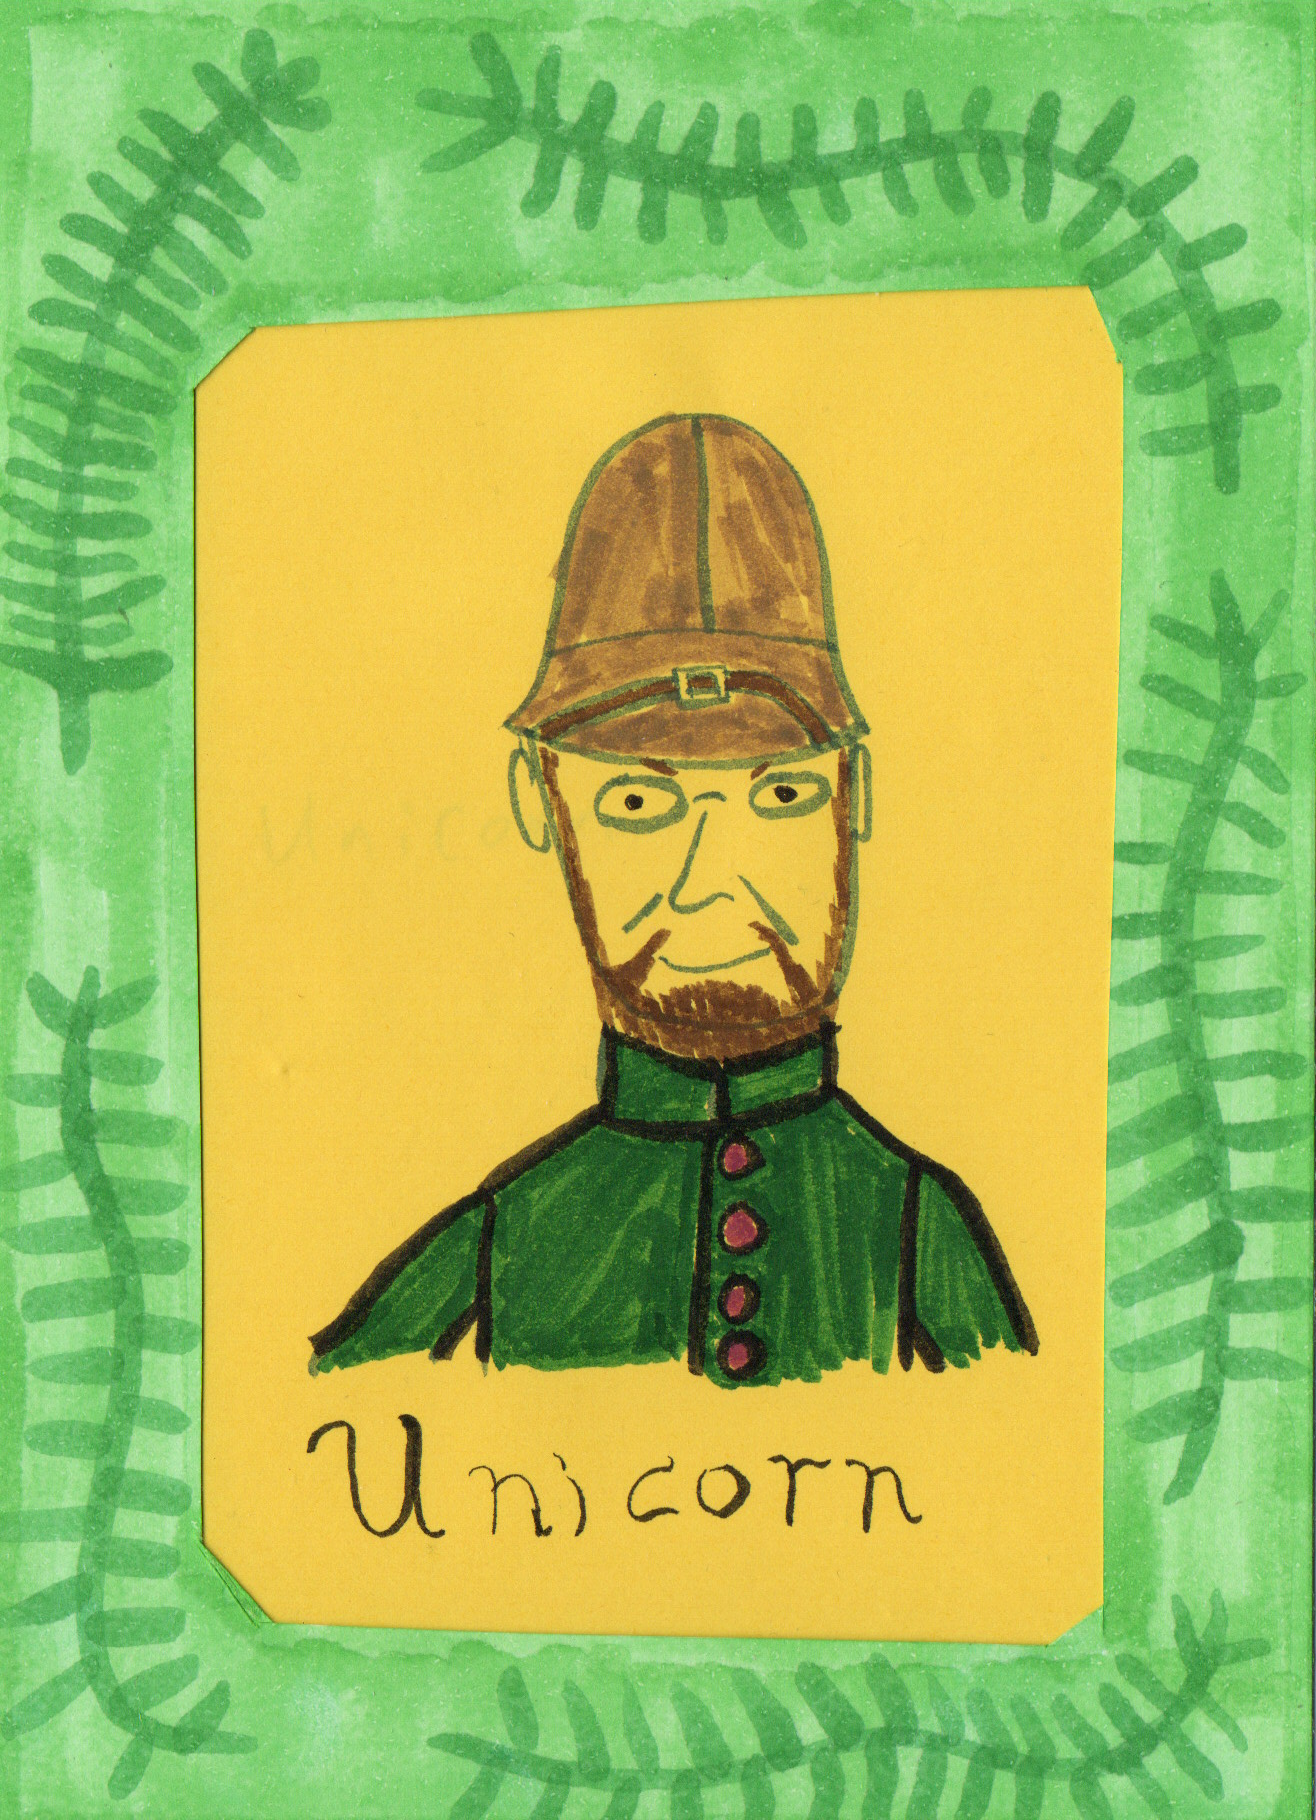 Unicorn
Unicorn